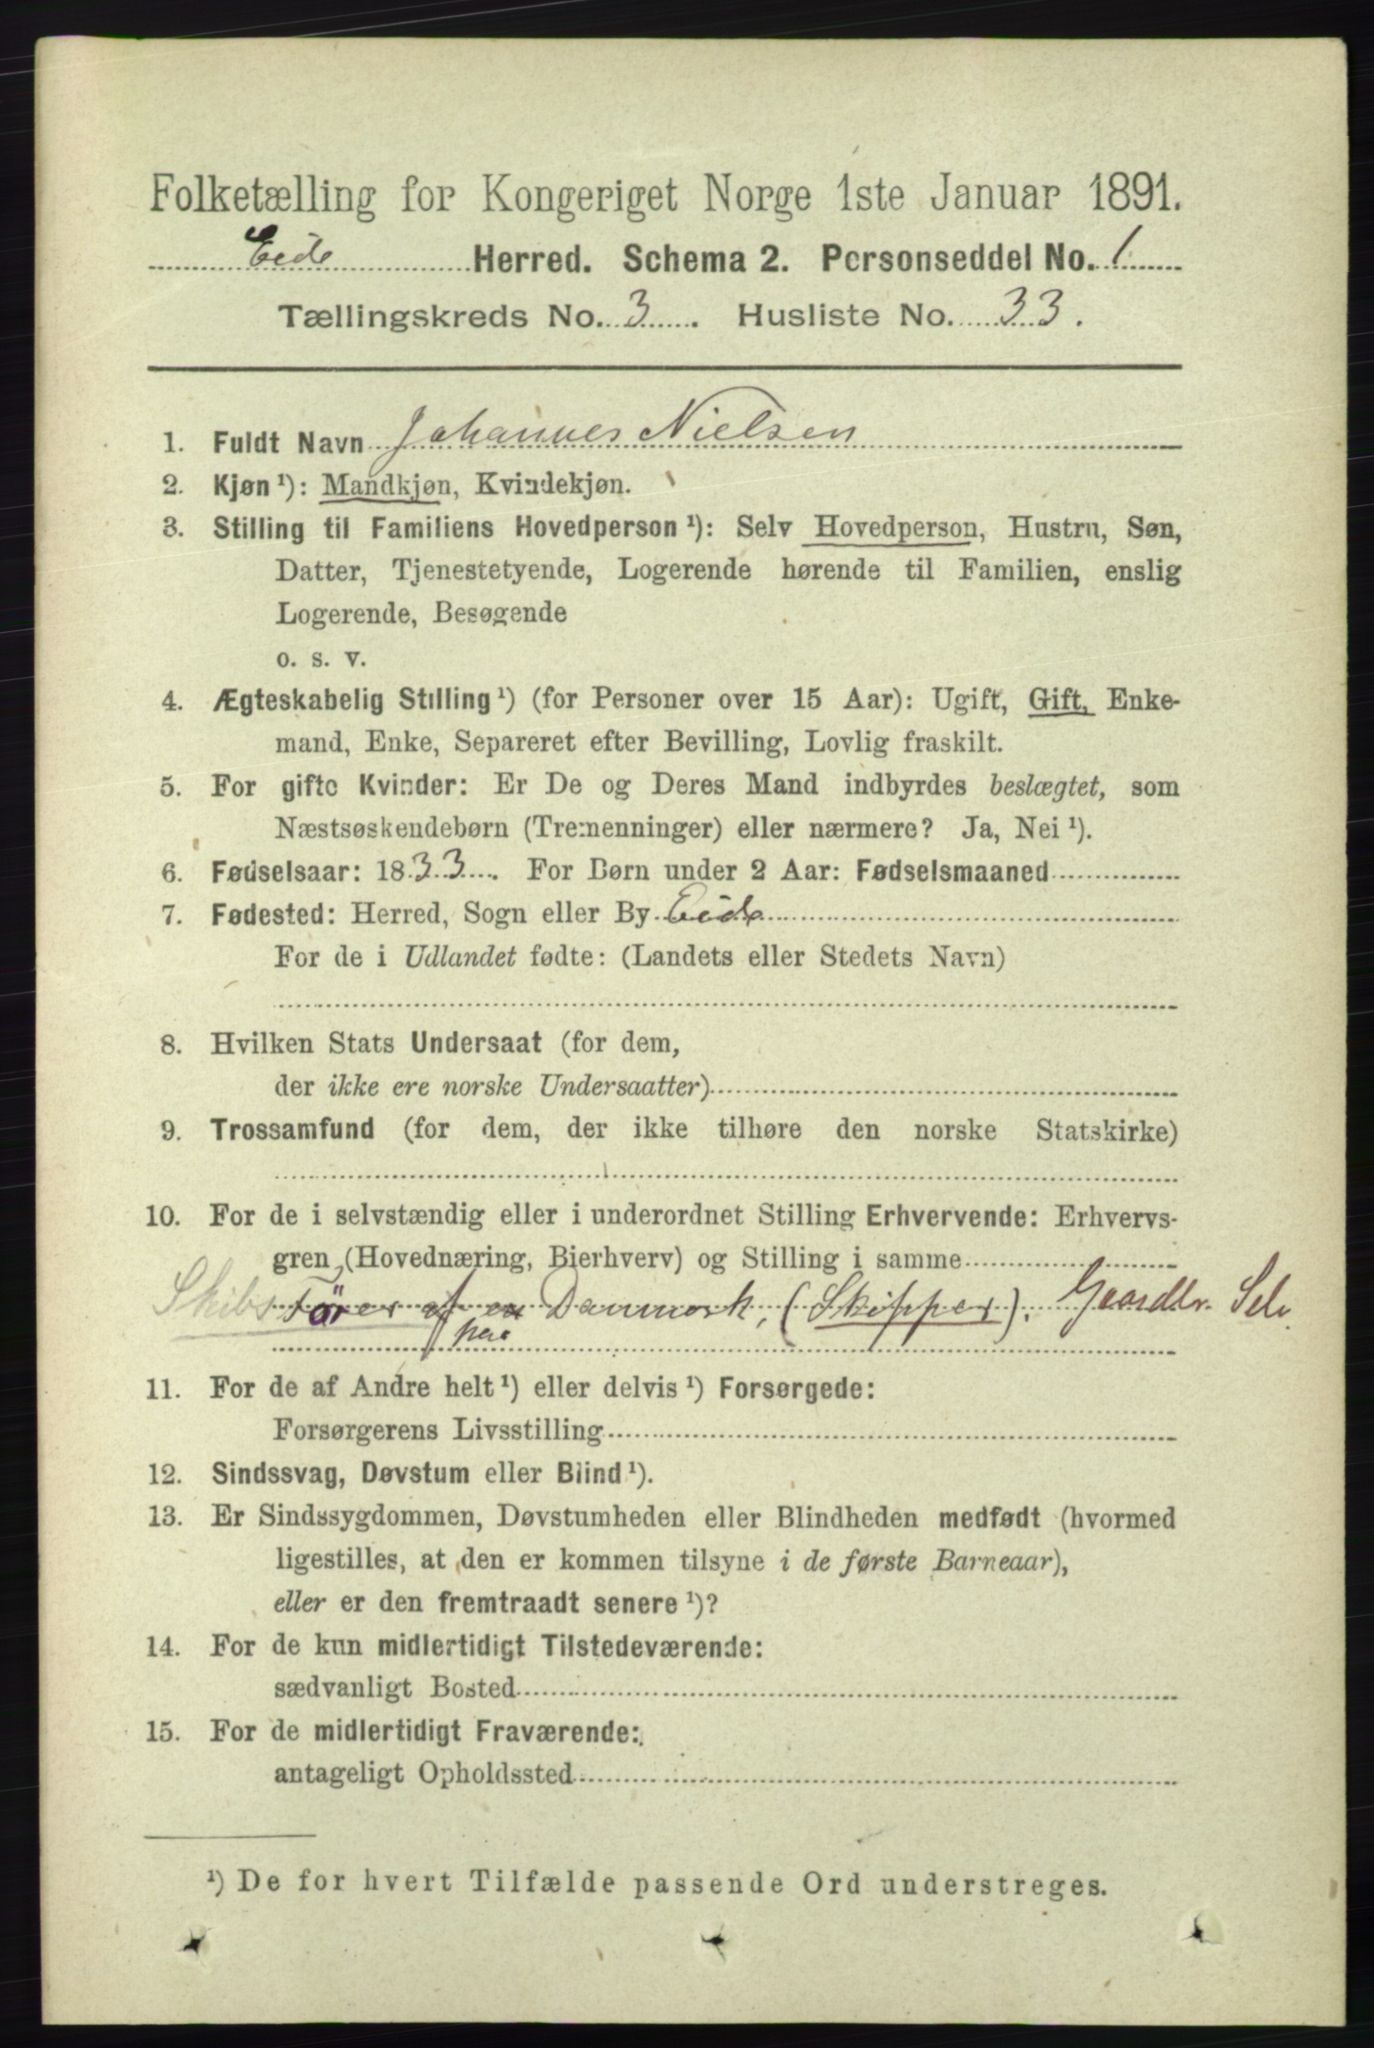 Folketælling for Kongeriget Norge 1ste Januar 1891.
Eide Herred. Schema 2. Personseddel No. 1
Tællingskreds No. 3. Husliste No. 33.
1. Fuldt Navn Johannes Nielsen
2. Kjøn ¹): Mandkjøn, Kvindekjøn.
3. Stilling til Familiens Hovedperson ¹): Selv Hovedperson, Hustru, Søn,
Datter, Tjenestetyende, Logerende hørende til Familien, enslig
Logerende, Besøgende
o. s. v.
4. Ægteskabelig Stilling ¹) (for Personer over 15 Aar): Ugift, Gift, Enke-
mand, Enke, Separeret efter Bevilling, Lovlig fraskilt.
5. For gifte Kvinder: Er De og Deres Mand indbyrdes beslægtet, som
Næstsøskendebørn (Tremenninger) eller nærmere? Ja, Nei ¹).
6. Fødselsaar: 1833. For Børn under 2 Aar: Fødselsmaaned
7. Fødested: Herred, Sogn eller By Eide
For de i Udlandet fødte: (Landets eller Stedets Navn)
8. Hvilken Stats Undersaat (for dem,
der ikke ere norske Undersaatter)
9. Trossamfund (for dem, der ikke tilhøre den norske Statskirke)
10. For de i selvstændig eller i underordnet Stilling Erhvervende: Erhvervs-
gren (Hovednæring, Bierhverv) og Stilling i samme
Skibsförer af en Danmark, (Skipper). Gaardbr. Selv.
11. For de af Andre helt ¹) eller delvis ¹) Forsørgede:
Forsørgerens Livsstilling
12. Sindssvag, Døvstum eller Blind ¹).
13. Er Sindssygdommen, Døvstumheden eller Blindheden medfødt (hvormed
ligestilles, at den er kommen tilsyne i de første Barneaar),
eller er den fremtraadt senere ¹)?
14. For de kun midlertidigt Tilstedeværende:
sædvanligt Bosted
15. For de midlertidigt Fraværende:
antageligt Opholdssted
¹) De for hvert Tilfælde passende Ord understreges.